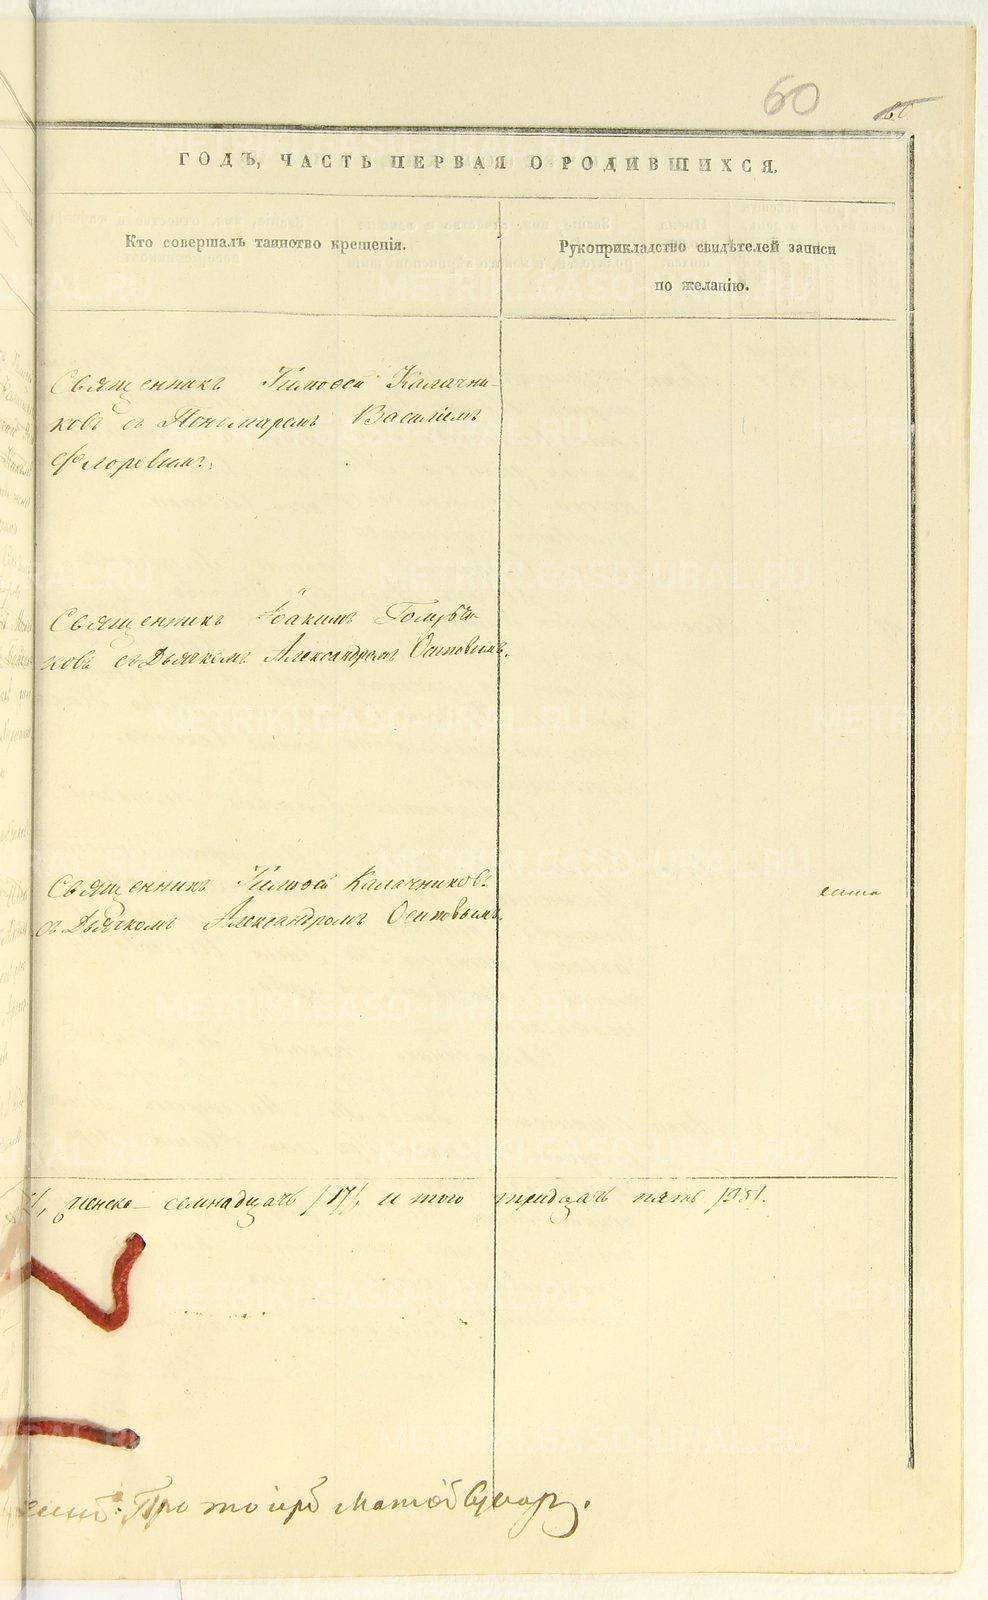 60
ГОДЪ, ЧАСТЬ ПЕРВАЯ О РОДИВШИХСЯ.
Кто совершалъ таинство крещенія.
Рукоприкладство свидѣтелей записи
по желанію.
Священникъ Тимоѳей Калачни-
ковъ съ Пономаремъ Василіемъ
Флоревымъ.
Священникъ Іоакимъ
ковъ съ Дьячкомъ Александромъ Осиповымъ.
Священникъ Тимоѳей Калачниковъ
съ Дьячкомъ Александромъ Осиповымъ.
женска – семнадцать /17/, и того тридцать пять /35/.
Протоіерей Матѳей
METRIKI.GASO-URAL.RU